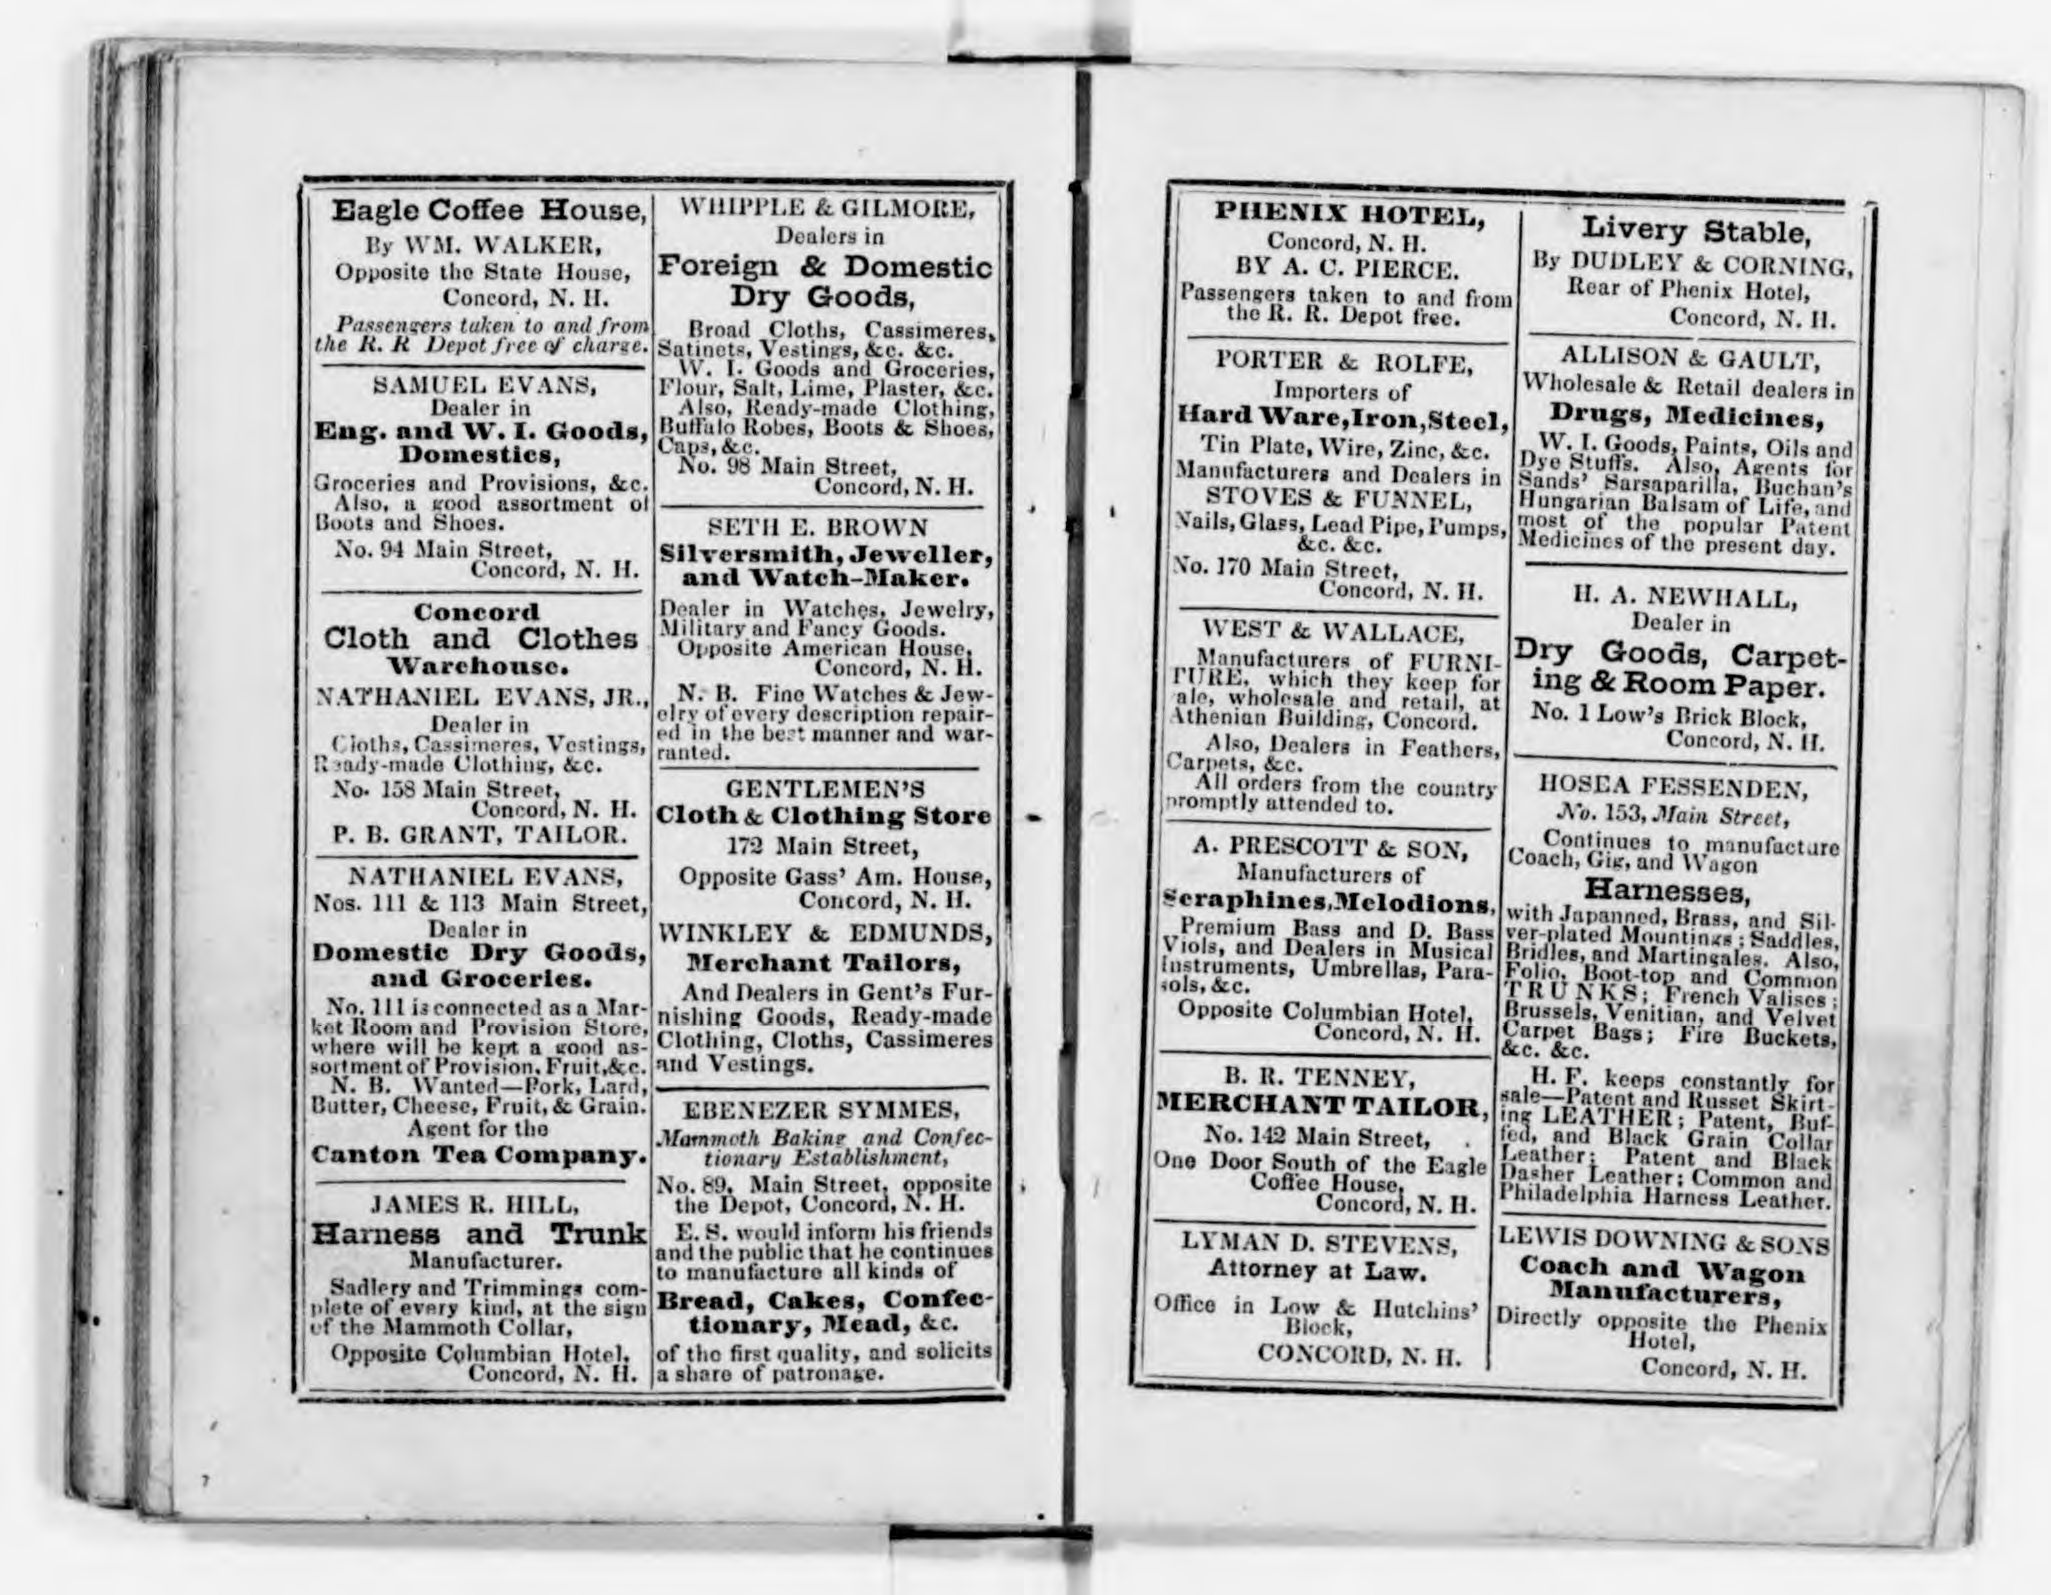 Eagle Coffee House,
By WM. WALKER,
Opposite the State House,
Concord, N. H.
Passengers taken to and from
the R. R Depot free of charge.
SAMUEL EVANS,
Dealer in
Eng. and W. I. Goods,
Domestics,
Groceries and Provisions, &c.
Also, a good assortment of
Boots and Shoes.
No. 94 Main Street,
Concord, N. H.
Concord
Cloth and Clothes
Warehouse.
NATHANIEL EVANS, JR.,
Dealer in
Cloths, Cassimeres, Vestings,
Ready-made Clothing, &c.
No. 158 Main Street,
Concord, N. H.
P. B. GRANT, TAILOR.
NATHANIEL EVANS,
Nos. 111 & 113 Main Street,
Dealer in
Domestic Dry Goods,
and Groceries.
No. 111 is connected as a Mar-
ket Room and Provision Store,
where will be kept a good as-
sortment of Provision, Fruit,&c.
N. B. Wanted—Pork, Lard,
Butter, Cheese, Fruit, & Grain.
Agent for the
Canton Tea Company.
JAMES R. HILL,
Harness and Trunk
Manufacturer.
Sadlery and Trimmings com-
plete of every kind, at the sign
of the Mammoth Collar,
Opposite Columbian Hotel,
Concord, N. H.
WHIPPLE & GILMORE,
Dealers in
Foreign & Domestic
Dry Goods,
Broad Cloths, Cassimeres,
Satinets, Vestings, &c. &c.
W. I. Goods and Groceries,
Flour, Salt, Lime, Plaster, &c.
Also, Ready-made Clothing,
Buffalo Robes, Boots & Shoes,
Caps, &c.
No. 98 Main Street,
Concord, N. H.
SETH E. BROWN
Silversmith, Jeweller,
and Watch-Maker.
Dealer in Watches, Jewelry,
Military and Fancy Goods.
Opposite American House,
Concord, N. H.
N. B. Fine Watches & Jew-
elry of every description repair-
ed in the best manner and war-
ranted.
GENTLEMEN'S
Cloth & Clothing Store
172 Main Street,
Opposite Gass' Am. House,
Concord, N. H.
WINKLEY & EDMUNDS,
Merchant Tailors,
And Dealers in Gent's Fur-
nishing Goods, Ready-made
Clothing, Cloths, Cassimeres
and Vestings.
EBENEZER SYMMES,
Mammoth Baking and Confec-
tionary Establishment,
No. 89, Main Street, opposite
the Depot, Concord, N. H.
E. S. would inform his friends
and the public that he continues
to manufacture all kinds of
Bread, Cakes, Confec-
tionary, Mead, &c.
of the first quality, and solicits
a share of patronage.
PHENIX HOTEL,
Concord, N. H.
BY A. C. PIERCE.
Passengers taken to and from
the R. R. Depot free.
PORTER & ROLFE,
Importers of
Hard Ware, Iron, Steel,
Tin Plate, Wire, Zinc, &c.
Manufacturers and Dealers in
STOVES & FUNNEL,
Nails, Glass, Lead Pipe, Pumps,
&c. &c.
No. 170 Main Street,
Concord, N. H.
WEST & WALLACE,
Manufacturers of FURNI-
TURE, which they keep for
ale, wholesale and retail, at
Athenian Building, Concord.
Also, Dealers in Feathers,
Carpets, &c.
All orders from the country
promptly attended to.
A. PRESCOTT & SON,
Manufacturers of
Seraphines, Melodions,
Premium Bass and D. Bass
Viols, and Dealers in Musical
Instruments, Umbrellas, Para-
sols, &c.
Opposite Columbian Hotel,
Concord, N. H.
B. R. TENNEY,
MERCHANT TAILOR,
No. 142 Main Street,
One Door South of the Eagle
Coffee House,
Concord, N. H.
LYMAN D. STEVENS,
Attorney at Law.
Office in Low & Hutchins'
Block,
CONCORD, N. H.
Livery Stable,
By DUDLEY & CORNING,
Rear of Phenix Hotel,
Concord, N. H.
ALLISON & GAULT,
Wholesale & Retail dealers in
Drugs, Medicines,
W. I. Goods, Paints, Oils and
Dye Stuffs. Also, Agents for
Sands' Sarsaparilla, Buchan's
Hungarian Balsam of Life, and
most of the popular Patent
Medicines of the present day.
H. A. NEWHALL,
Dealer in
Dry Goods, Carpet-
ing & Room Paper.
No. 1 Low's Brick Block,
Concord, N. H.
HOSEA FESSENDEN,
No. 153, Main Street,
Continues to manufacture
Coach, Gig, and Wagon
Harnesses,
with Japanned, Brass, and Sil-
ver-plated Mountings; Saddles,
Bridles, and Martingales. Also,
Folio, Boot-top and Common
TRUNKS; French Valises;
Brussels, Venitian, and Velvet
Carpet Bags; Fire Buckets,
&c. &c.
H. F. keeps constantly for
sale—Patent and Russet Skirt-
ing LEATHER; Patent, Buf-
fed, and Black Grain Collar
Leather; Patent and Black
Dasher Leather; Common and
Philadelphia Harness Leather.
LEWIS DOWNING & SONS
Coach and Wagon
Manufacturers,
Directly opposite the Phenix
Hotel,
Concord, N. H.